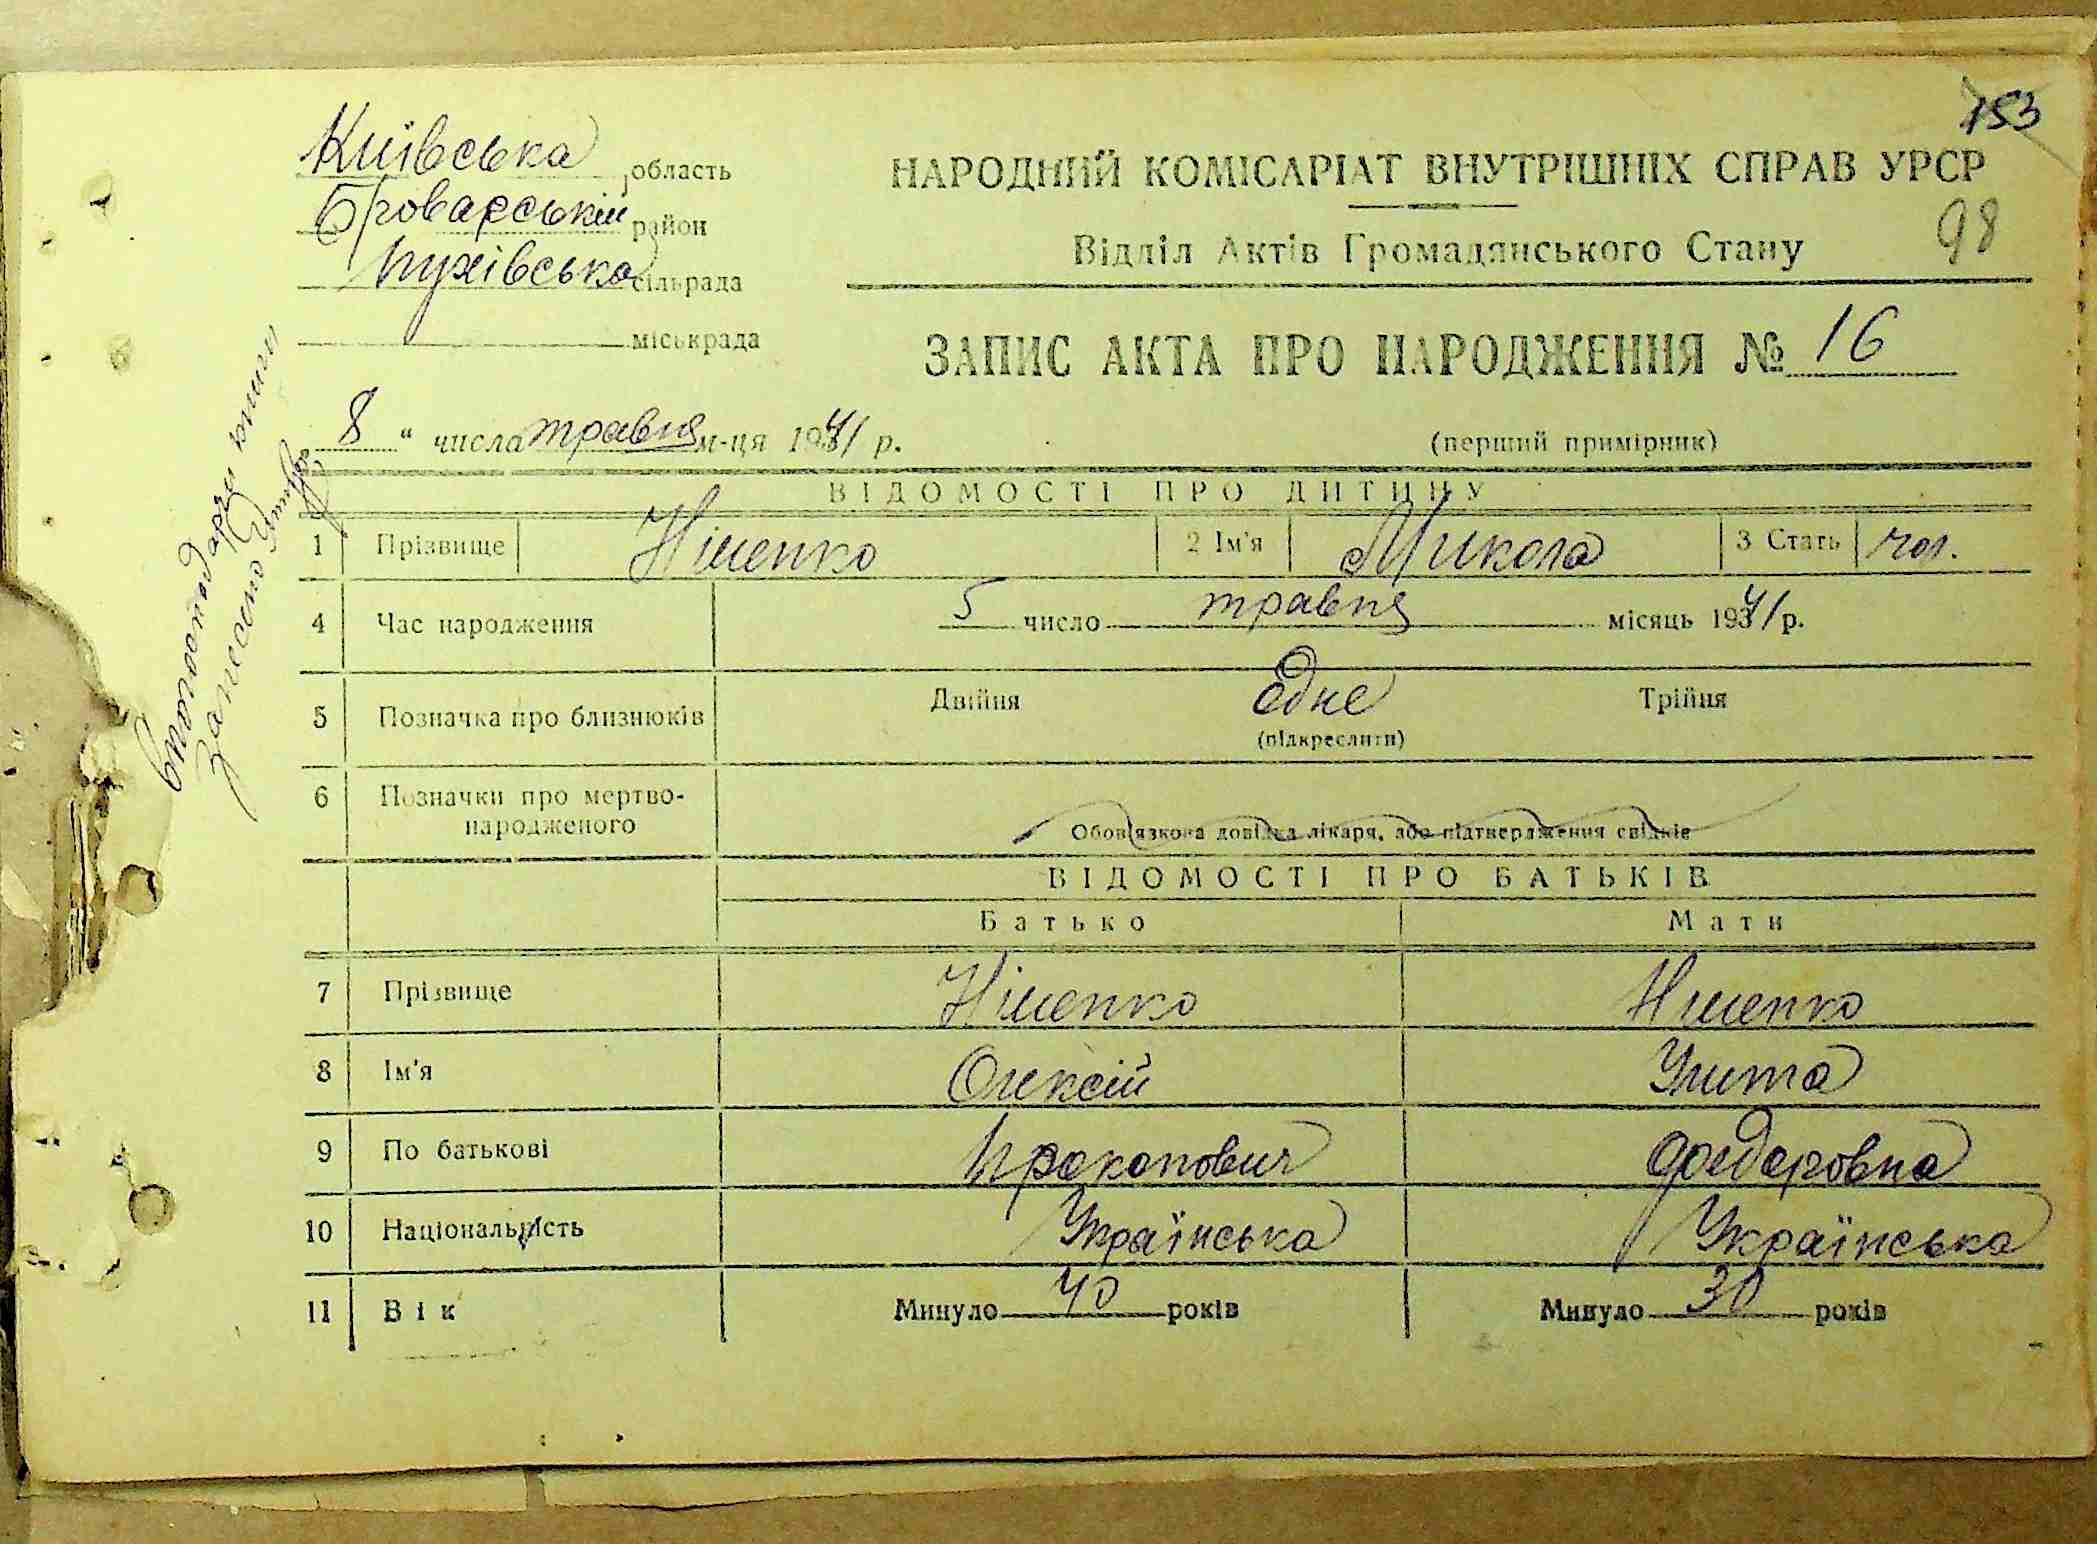 153
Київська область
Броварський район
Пухівська сільрада
міськрада
НАРОДНИЙ КОМІСАРІАТ ВНУТРІШНІХ СПРАВ УРСР
98
Відділ Актів Громадянського Стану
ЗАПИС АКТА ПРО НАРОДЖЕННЯ № 16
8 " числа травня м-ця 1941 р.
(перший примірник)
в погосподарчу книгу
записано
ВІДОМОСТІ ПРО ДИТИНУ
1 Прізвище Німенко 2 Ім'я Микола 3 Стать чол.
4 Час народження 5 число травня місяць 1941 р.
5 Позначка про близнюків Двійня одне Трійня
(підкреслити)
6 Позначки про мертво-
народженого
Обов'язкова довідка лікаря, або підтвердження свідків
ВІДОМОСТІ ПРО БАТЬКІВ
Батько Мати
7 Прізвище Німенко Німенко
8 Ім'я Олексій Улита
9 По батькові Прокопович Федоровна
10 Національність Українська Українська
11 Вік Минуло 40 років Минуло 30 років